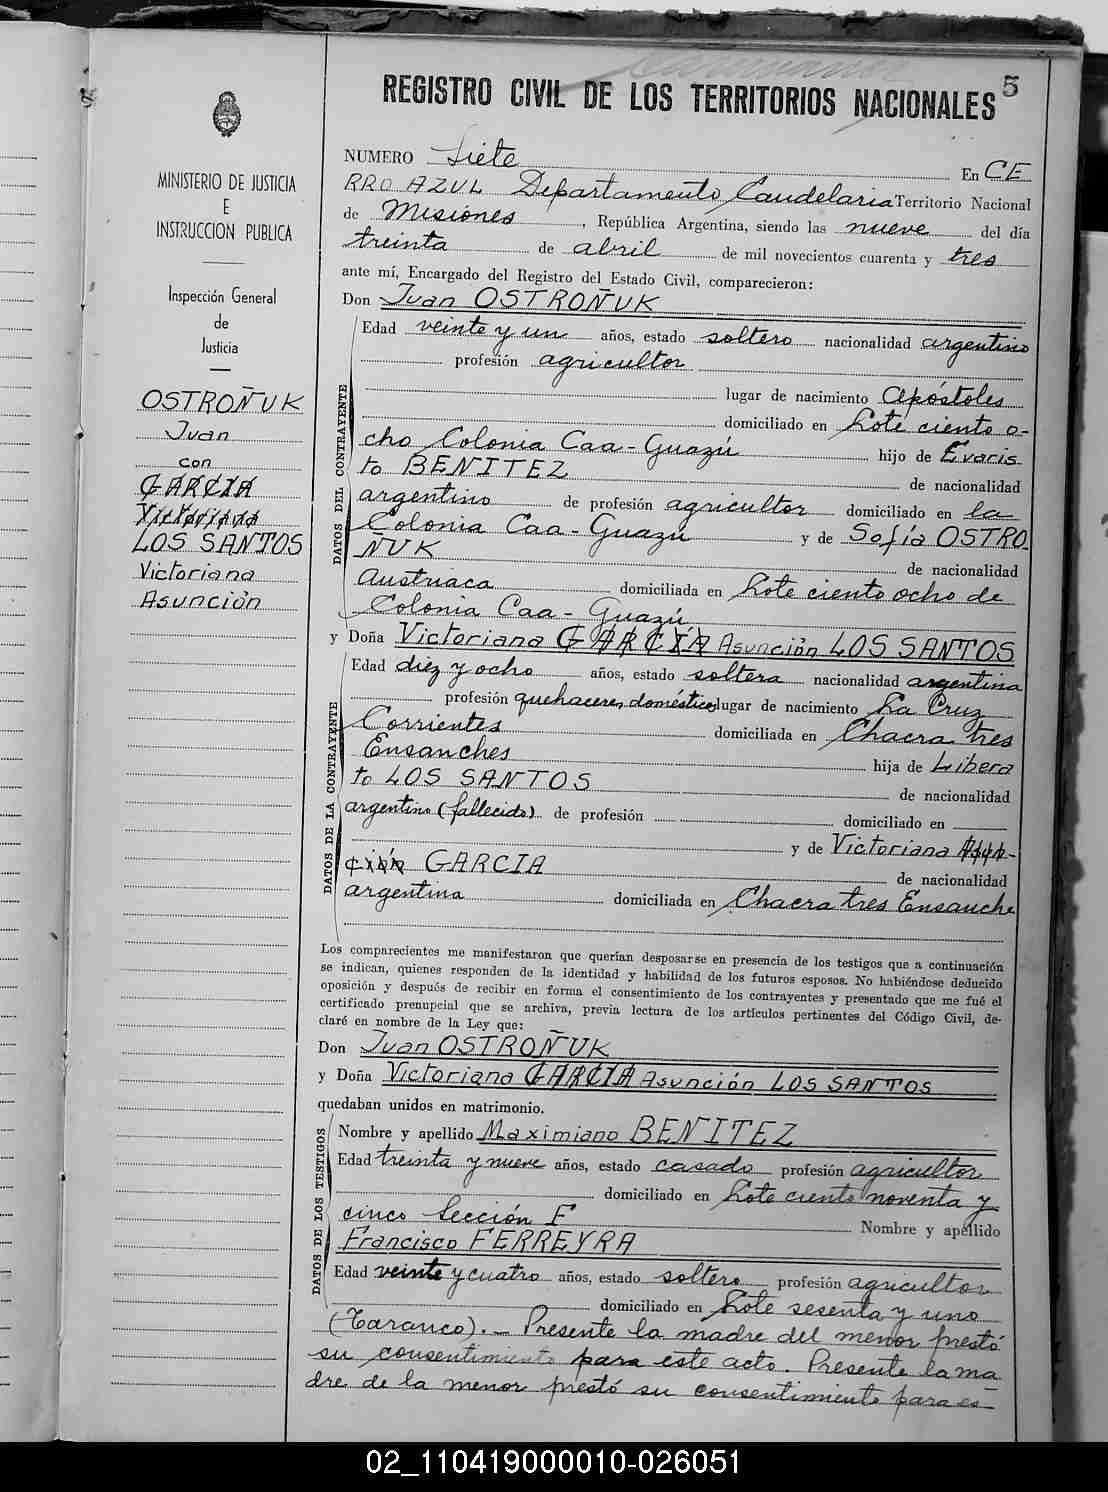 5
REGISTRO CIVIL DE LOS TERRITORIOS NACIONALES
MINISTERIO DE JUSTICIA
E
INSTRUCCION PUBLICA
Inspección General
de
Justicia
OSTROÑUK
Juan
con
GARCIA
Victoriana
LOS SANTOS
Victoriana
Asunción
NUMERO Siete En CE
RRO AZUL Departamento Candelaria Territorio Nacional
de Misiones, República Argentina, siendo las nueve del día
treinta de abril de mil novecientos cuarenta y tres
ante mí, Encargado del Registro del Estado Civil, comparecieron:
Don Juan OSTROÑUK
DATOS DEL CONTRAYENTE
Edad veinte y un años, estado soltero nacionalidad argentino
profesión agricultor
lugar de nacimiento Apóstoles
domiciliado en Lote ciento o-
cho Colonia Caa-Guazú hijo de Evaris
to BENITEZ de nacionalidad
argentino de profesión agricultor domiciliado en la
Colonia Caa-Guazú y de Sofía OSTRO
ÑUK de nacionalidad
Austriaca domiciliada en Lote ciento ocho de
Colonia Caa-Guazú
y Doña Victoriana GARCÍA Asunción LOS SANTOS
DATOS DE LA CONTRAYENTE
Edad diez y ocho años, estado soltera nacionalidad argentina
profesión quehaceres domésticos lugar de nacimiento La Cruz
Corrientes domiciliada en Chacra tres
Ensanches hija de Libera
to LOS SANTOS de nacionalidad
argentino (fallecido) de profesión domiciliado en
y de Victoriana Asun-
ción GARCIA de nacionalidad
argentina domiciliada en Chacra tres Ensanche
Los comparecientes me manifestaron que querían desposarse en presencia de los testigos que a continuación
se indican, quienes responden de la identidad y habilidad de los futuros esposos. No habiéndose deducido
oposición y después de recibir en forma el consentimiento de los contrayentes y presentado que me fué el
certificado prenupcial que se archiva, previa lectura de los artículos pertinentes del Código Civil, de-
claré en nombre de la Ley que:
Don Juan OSTROÑUK
y Doña Victoriana GARCIA Asunción LOS SANTOS
quedaban unidos en matrimonio.
DATOS DE LOS TESTIGOS
Nombre y apellido Maximiano BENITEZ
Edad treinta y nueve años, estado casado profesión agricultor
domiciliado en Lote ciento noventa y
cinco Sección F Nombre y apellido
Francisco FERREYRA
Edad veinte y cuatro años, estado soltero profesión agricultor
domiciliado en Lote sesenta y uno
(Taranco).- Presente la madre del menor prestó
su consentimiento para este acto. Presente la ma
dre de la menor prestó su consentimiento para es-
02_110419000010-026051